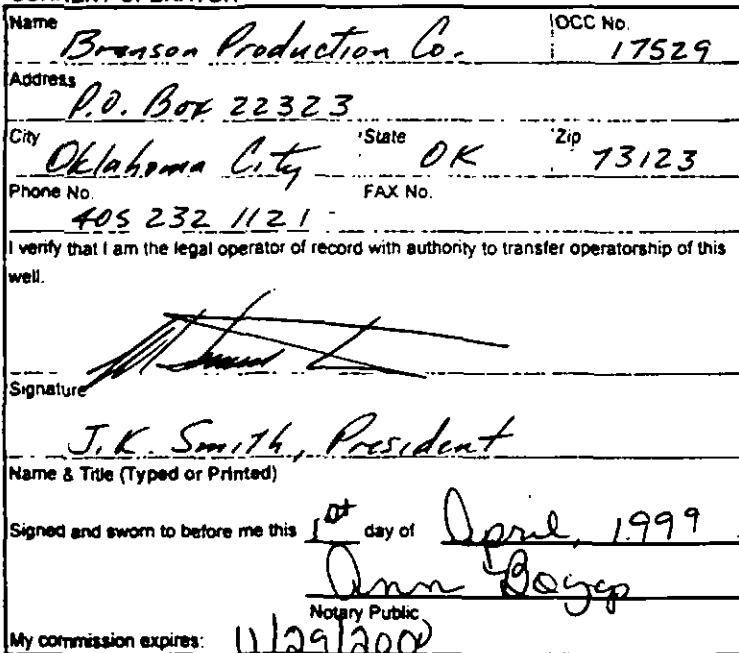 CURRENT OPERATOR
Name OCC No.
Branson Production Co. 17529
Address
P.O. Box 22323
City State Zip
Oklahoma City OK 73123
Phone No. FAX No.
405 232 1121
I verify that I am the legal operator of record with authority to transfer operatorship of this
well.
Signature
J.K. Smith, President
Name & Title (Typed or Printed)
Signed and sworn to before me this 1st day of April, 1999
Ann
Notary Public
My commission expires: 11/29/2000